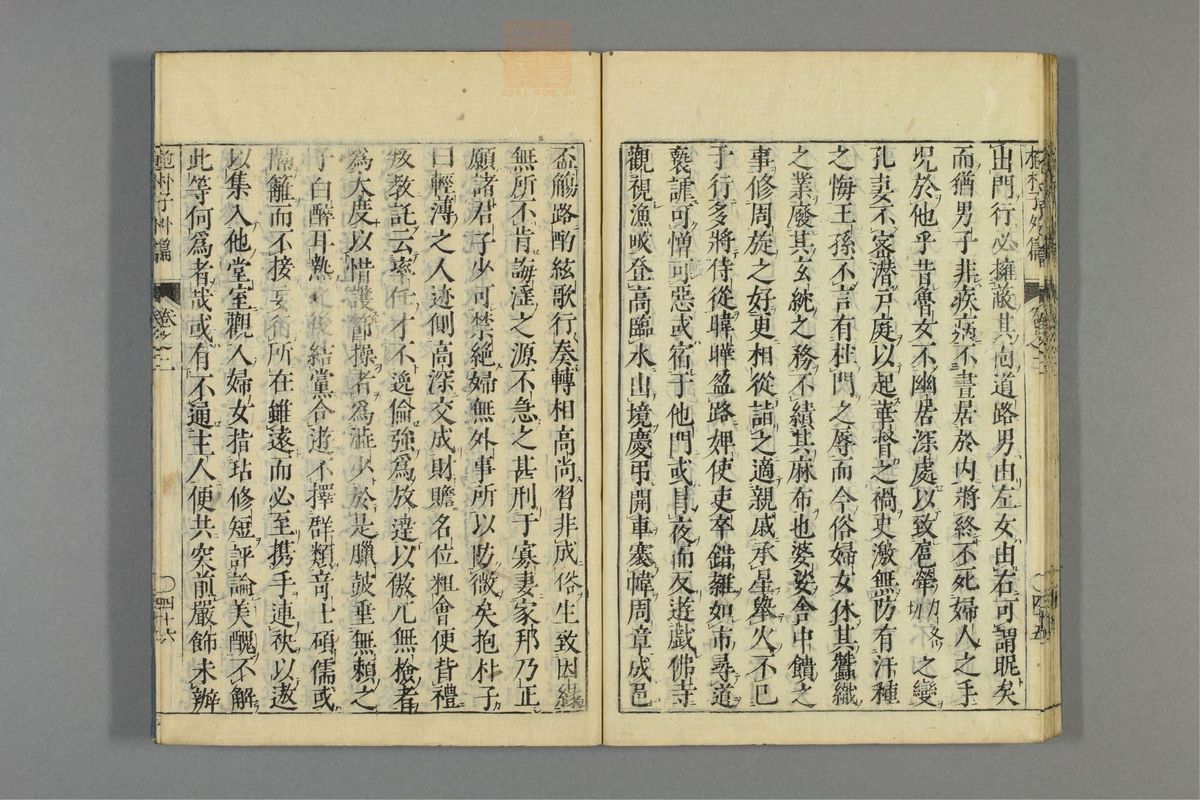 出門行必擁蔽其面道路男由左女由右可謂昵矣
而猶男子非疾病不晝居於內將終不死婦人之手
况於他乎昔魯女不幽居深處以致扈犖力各切之變
孔妻不密潜戸庭以起華督之禍史激無防有汗種
之悔王孫不言有杜門之辱而今俗婦女休其蠶織
之業廢其玄紞之務不績其麻市也婆娑舍中饋之
事修周旋之好更相從詣之適親戚承星舉火不已
于行多將侍從暐曄盈路婢使吏卒錯雜如市尋道
褻謔可憎可惡或宿于他門或冒夜而反遊戲佛寺
觀視漁畋登高臨水出境慶弔開車褰幃周章成邑
盃觴路酌絃歌行奏轉相高尚習非成俗生致因緣
無所不肯誨淫之源不急之甚刑于寡妻家邦乃正
願諸君子少可禁絶婦無外事所以防微矣抱朴子
曰輕薄之人迹側高深交成財贍名位粗會便背禮
叛教託云率任才不逸倫強爲放達以傲兀無檢者
爲大度以惜護節操者爲澁少於是臘鼓垂無賴之
子白醉耳熱之後結黨合遊不擇群類奇士碩儒或
隔籬而不接妄行所在雖遠而必至携手連袂以遨
以集入他堂室觀人婦女指玷修短評論美醜不解
此等何爲者哉或有不通主人便共突前嚴飾未辦
卷之二
四十六